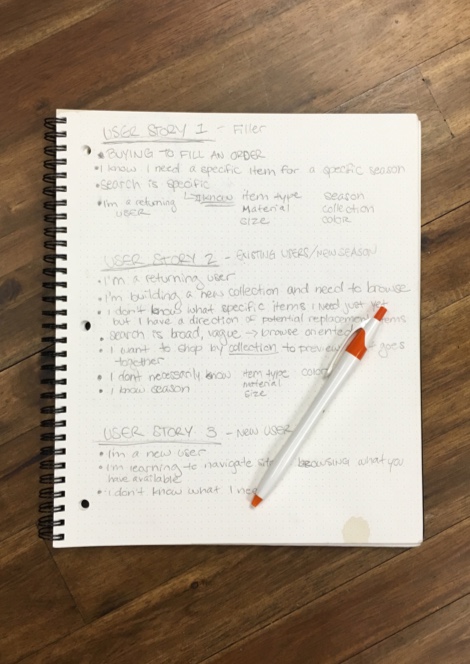 USER STORY 1 - Filler
• BUYING TO FILL AN ORDER
• I know I need a specific item for a specific season
• search is specific
• I'm a returning USER
I know item type season
Material collection
size color
USER STORY 2 - EXISTING USERS/NEW SEASON
• I'm a returning user
• I'm building a new collection and need to browse
• I don't know what specific items I need just yet
but I have a direction of potential replacement items
• search is broad, vague → browse oriented
• I want to shop by collection to preview goes
together
• I don't necessarily know item type color
material
size
• I know season
USER STORY 3 - NEW USER
• I'm a new user
• I'm learning to navigate browsing what you
have available
• I don't know what I